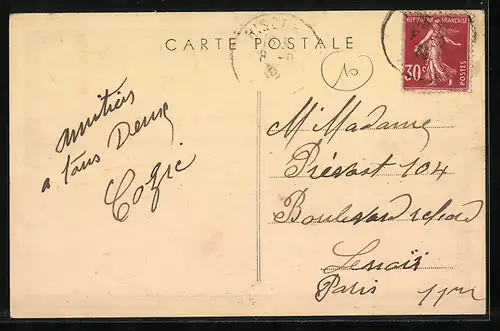 CARTE POSTALE
10
REPUBLIQUE FRANÇAISE
30c
POSTES
amitiés
a tous Deux
Cozic
M Madame
Prévost 104
Boulevard richard
Lenoir
Paris 11me